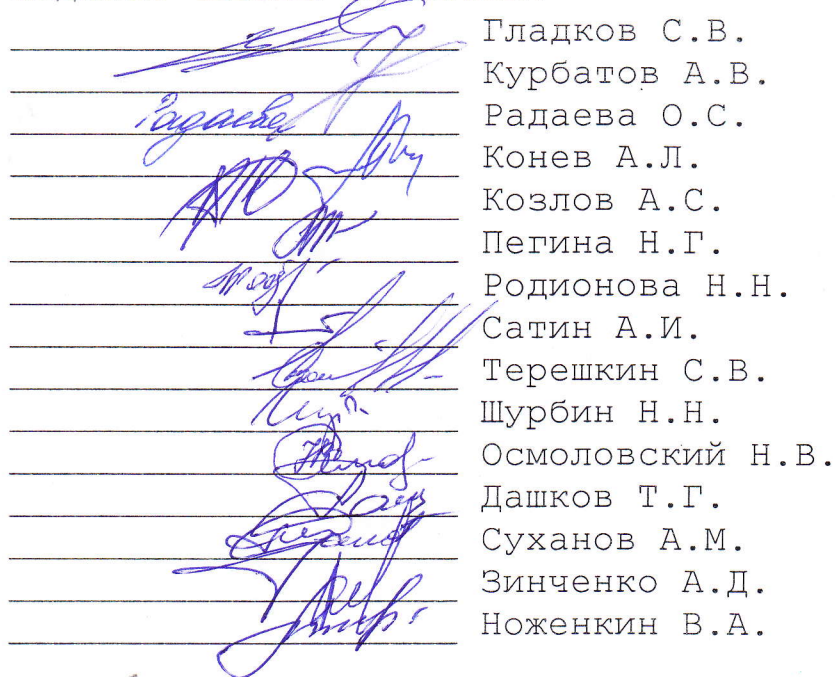 Гладков С.В.
Курбатов А.В.
Радаева Радаева О.С.
Конев А.Л.
Козлов А.С.
Пегина Н.Г.
Родионова Н.Н.
Сатин А.И.
Терешкин С.В.
Шурбин Н.Н.
Осмоловский Н.В.
Дашков Т.Г.
Суханов А.М.
Зинченко А.Д.
Ноженкин В.А.